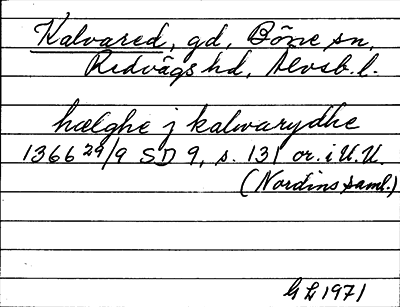 Kalvared, gd, Böne sn,
Redvägs hd, Älvsb. l.
hælghe j kalwarydhe
1366 29/9 SD 9, s. 131 or. i U.U.
(Nordins saml.)
G L 1971